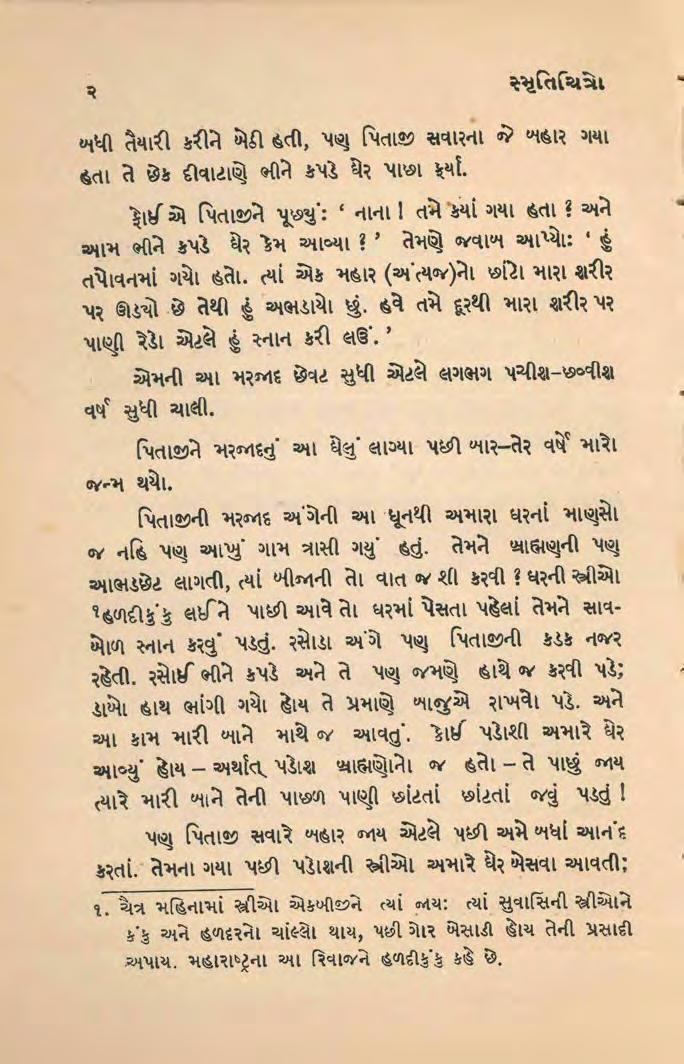 ૨
સ્મૃતિચિત્રો
બધી તૈયારી કરીને બેઠી હતી, પણ પિતાજી સવારના જે બહાર ગયા
હતા તે છેક દીવાટાણે ભીને કપડે ઘેર પાછા ફર્યા.
ફોઈએ પિતાજીને પૂછ્યું: ‘ નાના ! તમે ક્યાં ગયા હતા ? અને
આમ ભીને કપડે ઘેર કેમ આવ્યા ? ’ તેમણે જવાબ આપ્યો: ‘ હું
તપોવનમાં ગયો હતો. ત્યાં એક મહાર (અંત્યજ)નો છાંટો મારા શરીર
પર ઊડ્યો છે તેથી હું અભડાયો છું. હવે તમે દૂરથી મારા શરીર પર
પાણી રેડો એટલે હું સ્નાન કરી લઉં. ’
એમની આ મરજાદ છેવટ સુધી એટલે લગભગ પચીશ–છવ્વીશ
વર્ષ સુધી ચાલી.
પિતાજીને મરજાદનું આ ઘેલું લાગ્યા પછી બાર–તેર વર્ષે મારો
જન્મ થયો.
પિતાજીની મરજાદ અંગેની આ ધૂનથી અમારા ઘરનાં માણસો
જ નહિ પણ આખું ગામ ત્રાસી ગયું હતું. તેમને બ્રાહ્મણની પણ
આભડછેટ લાગતી, ત્યાં બીજાની તો વાત જ શી કરવી ? ઘરની સ્ત્રીઓ
૧હળદીકુંકુ લઈને પાછી આવે તો ઘરમાં પેસતા પહેલાં તેમને સાવ-
બોળ સ્નાન કરવું પડતું. રસોડા અંગે પણ પિતાજીની કડક નજર
રહેતી. રસોઈ ભીને કપડે અને તે પણ જમણે હાથે જ કરવી પડે;
ડાબો હાથ ભાંગી ગયો હોય તે પ્રમાણે બાજુએ રાખવો પડે. અને
આ કામ મારી બાને માથે જ આવતું. કોઈ પડોશી અમારે ઘેર
આવ્યું હોય – અર્થાત્ પડોશ બ્રાહ્મણોનો જ હતો – તે પાછું જાય
ત્યારે મારી બાને તેની પાછળ પાણી છાંટતાં છાંટતાં જવું પડતું !
પણ પિતાજી સવારે બહાર જાય એટલે પછી અમે બધાં આનંદ
કરતાં. તેમના ગયા પછી પડોશની સ્ત્રીઓ અમારે ઘેર બેસવા આવતી;
૧. ચૈત્ર મહિનામાં સ્ત્રીઓ એકબીજીને ત્યાં જાય: ત્યાં સુવાસિની સ્ત્રીઓને
કંકુ અને હળદરનો ચાંલ્લો થાય, પછી ગોર બેસાડી હોય તેની પ્રસાદી
અપાય. મહારાષ્ટ્રના આ રિવાજને હળદીકુંકુ કહે છે.